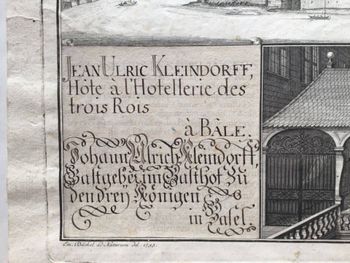 JEAN ULRIC KLEINDORFF,
Hôte à l'Hotellerie des
trois Rois
à BÂLE.
Johann Ulrich Kleindorff,
Gastgeber im Gasthof Zu
den dreÿ Königen
in Basel.
Em: Büchel ad Naturam del. 1753.